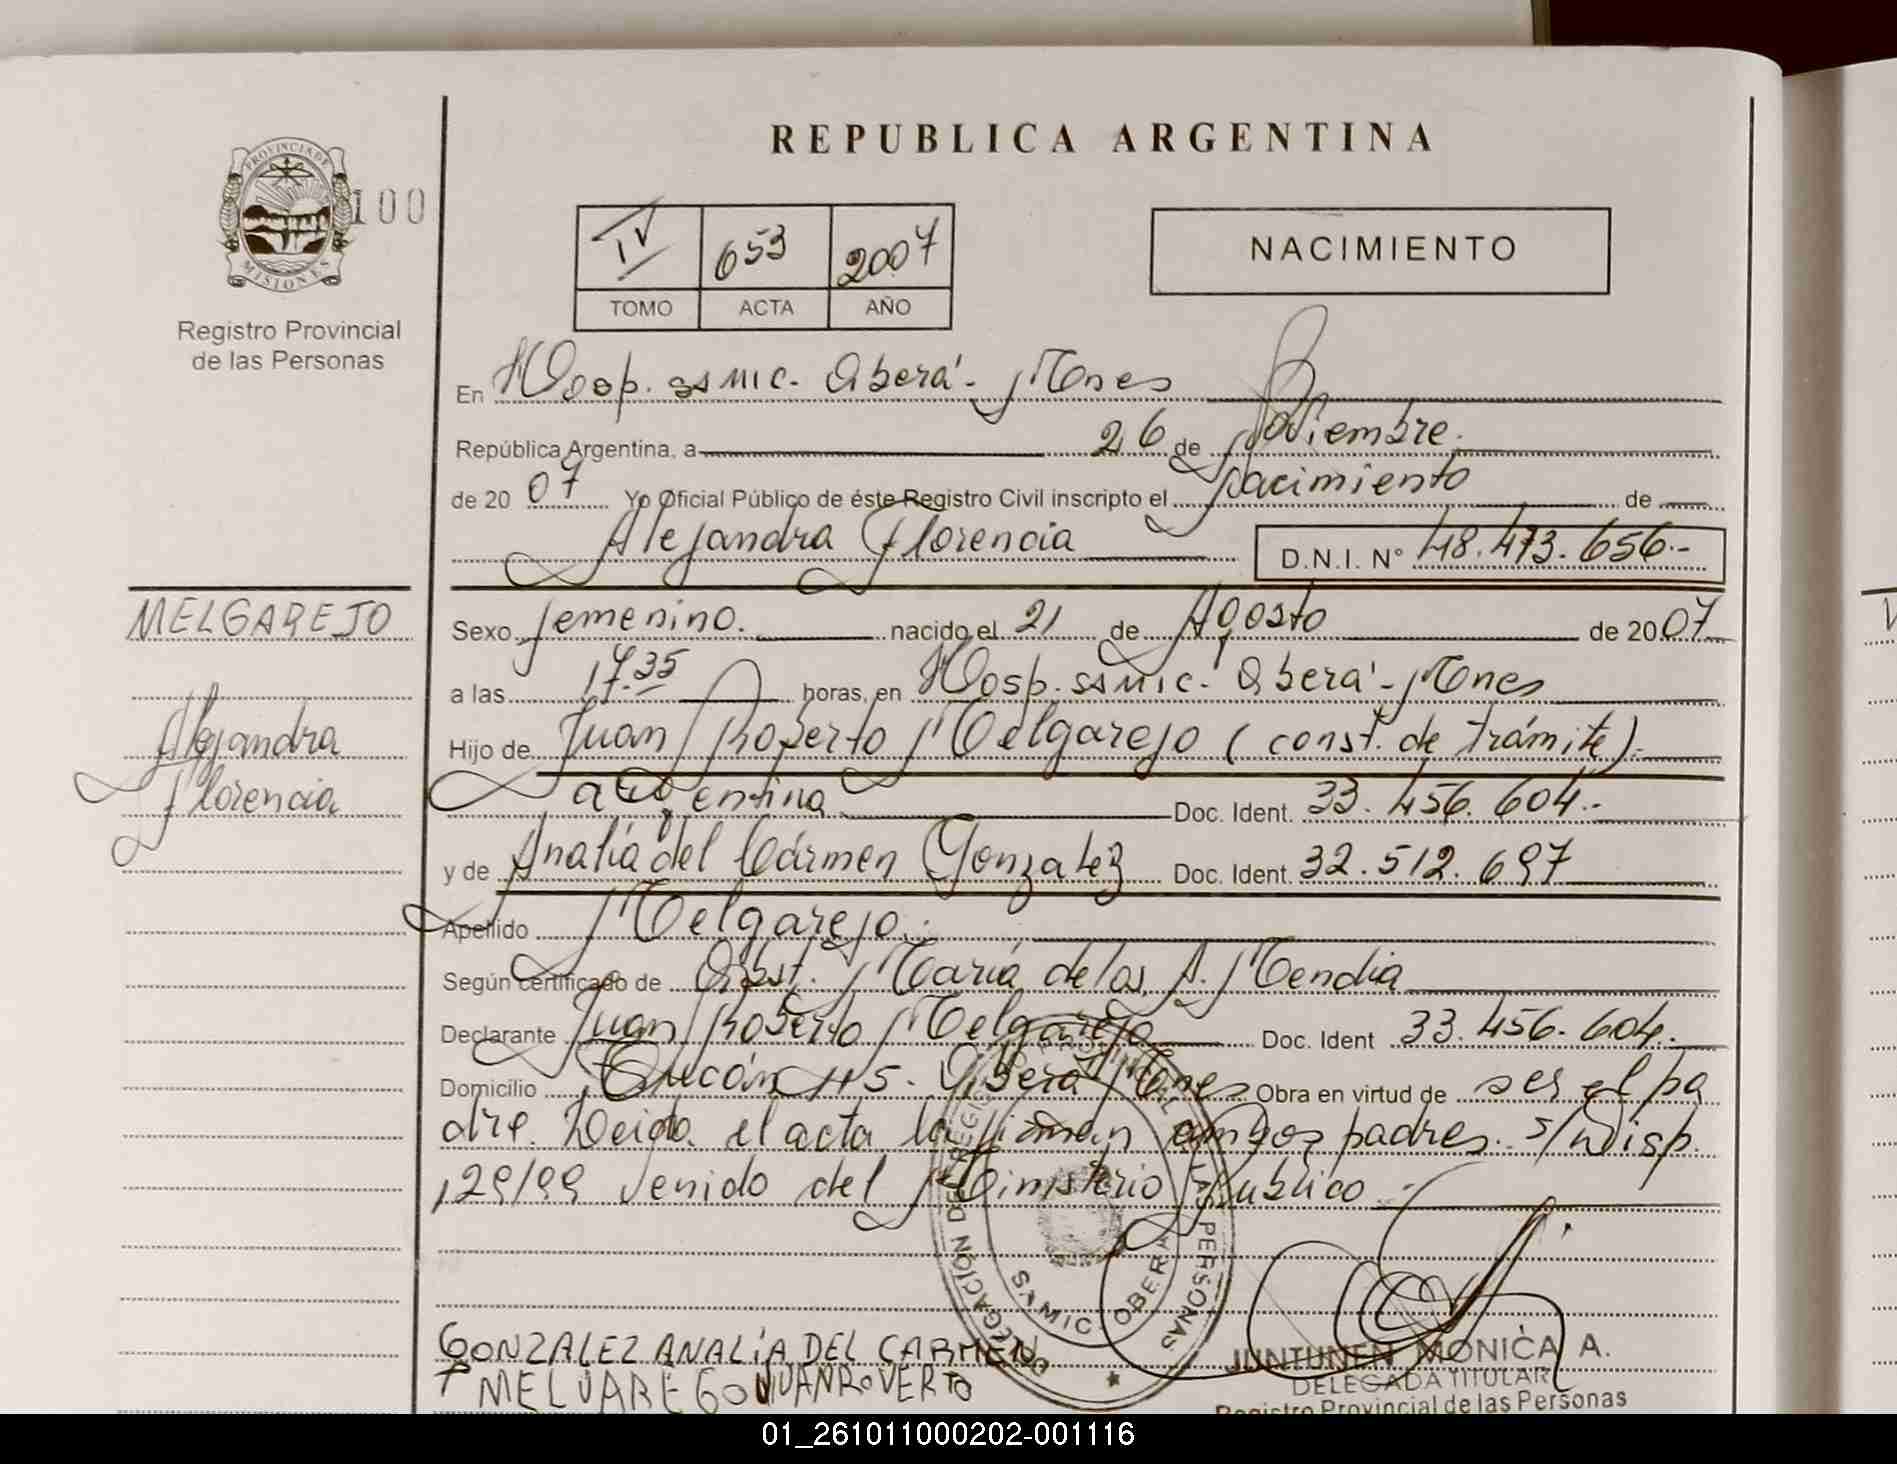 REPUBLICA ARGENTINA
PROVINCIA DE
MISIONES
100
Registro Provincial
de las Personas
IV 653 2007
TOMO ACTA AÑO
NACIMIENTO
En Hosp. SAMIC. Oberá - Mnes
República Argentina, a 26 de Noviembre.
de 20 07 Yo Oficial Público de éste Registro Civil inscripto el nacimiento de
Alejandra Florencia D.N.I. Nº 48.473.656.-
MELGAREJO
Alejandra
Florencia
Sexo femenino. nacido el 21 de Agosto de 20 07
a las 17.35 horas, en Hosp. SAMIC. Oberá - Mnes
Hijo de Juan Roberto Melgarejo (const. de trámite).
argentina Doc. Ident. 33.456.604.-
y de Analía del Cármen Gonzalez Doc. Ident. 32.512.697
Apellido Melgarejo.
Según certificado de Obst. María de los A. Mendia
Declarante Juan Roberto Melgarejo Doc. Ident 33.456.604.
Domicilio 115. Oberá Mnes Obra en virtud de ser el pa
dre. Leida el acta la firman ambos padres. s/Disp.
129/99 venido del Ministerio Publico.-
DELEGACIÓN DEL REGISTRO PROVINCIAL DE LAS PERSONAS
SAMIC OBERÁ
GONZALEZ ANALíA DEL CARMEN
MELUAREGO JUAN ROVERTO
JUNTUNEN MONICA A.
DELEGADA TITULAR
Registro Provincial de las Personas
01_261011000202-001116